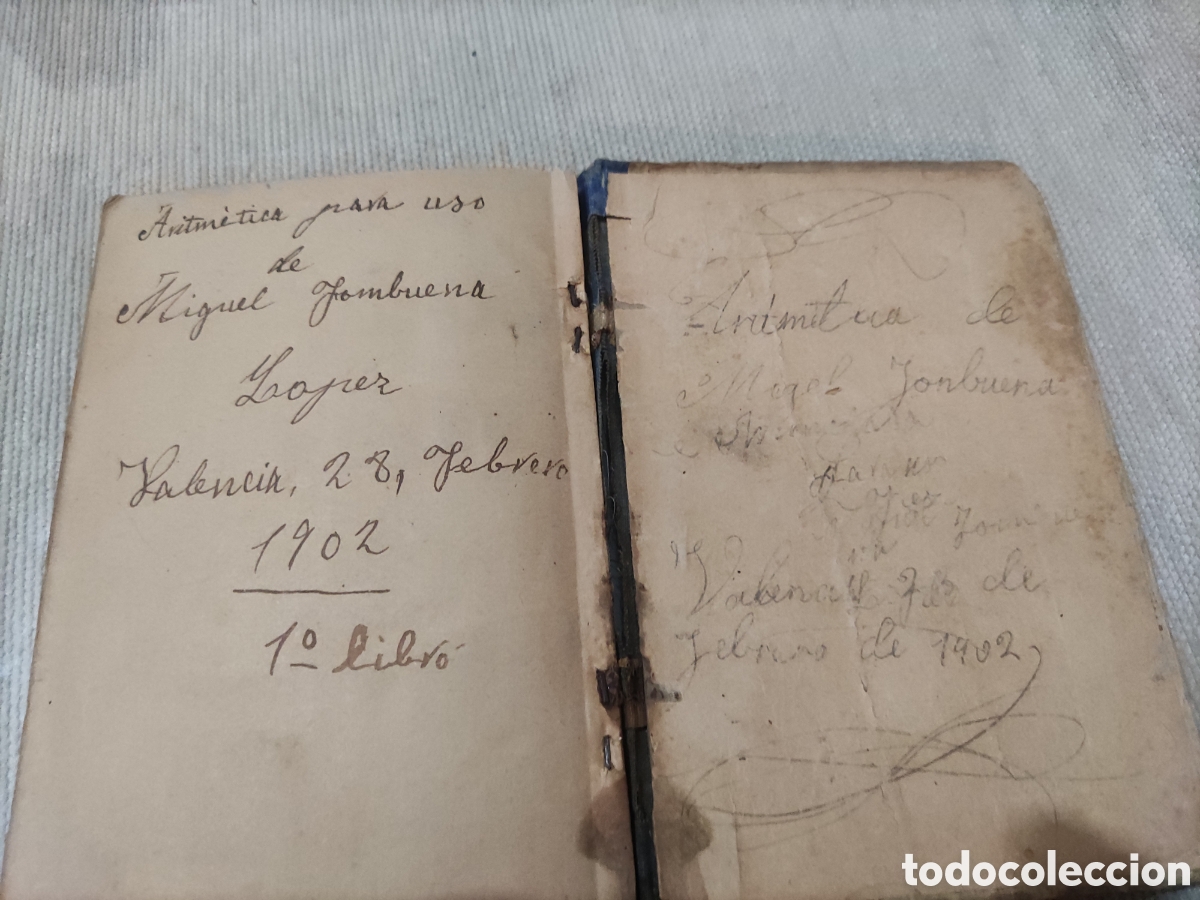 Aritmética para uso
de
Miguel Jombuena
Lopez
Valencia, 28, Febrero
1902
1º libro
Aritmetica de
Migel Jonbuena
Valencia 28 de
Febrero de 1902
todocoleccion